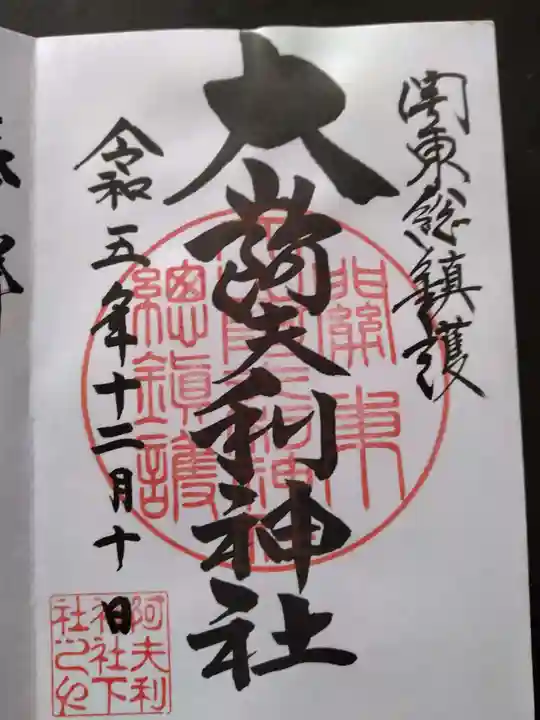 関東総鎮護
大山阿夫利神社
令和五年十二月十日
關東
總鎮護
阿夫利
神社下
社之印